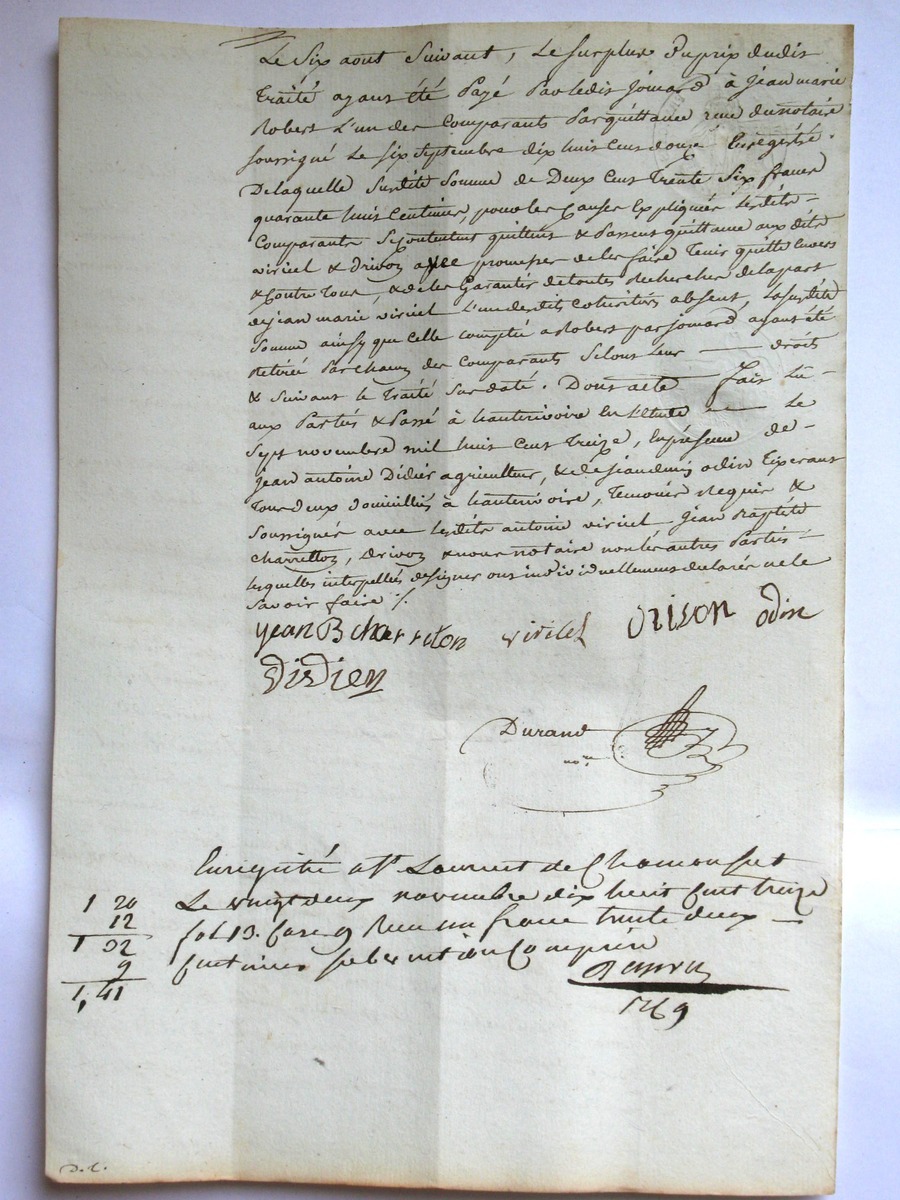 Le Six aout Suivant, Le Surplus Duprix dudit
traité ayant été Payé Parledit Jomard à jean marie
Robert L'un des Comparants Par quittance reçue dunotaire
Soussigné Le Six Septembre dix huit cent douze Enregistré.
De laquelle Surdite Somme de Deux Cent Trente Six francs
quarante huit Centimes, pour les Causes Expliquées lesdits
Comparants Se Contentent quittent & Passent quittance auxdits
viriel & Drivon avec promesse de les faire Tenir quitte Envers
& Contre Tous, & de les Garantir de toutes Recherches de la part
de jean marie viriel L'un desdits cohéritiers absent, La Surdite
Somme ainsy que Celle Comptée a Robert par jomard ayant été
Retirée Par chacun des Comparants Selont Leur droits
& Suivant le Traité Sur daté. Dont acte fait Lu
aux Parties & Passé à hauterivoire En L'Etude Le
Sept novembre mil huit Cent Treize, En présence de
jean antoine Didier agriculteur, & de odin
Tous deux domiciliés à hauterivoire, Temoins Requis &
Soussignés avec lesdits antoine viriel jean Baptiste
charretton, Drivon & nous notaire non les autres Parties
lesquelles interpellés de signer ont individuellement déclaré ne le
Savoir faire ./.
jean B charreton viriel Drivon odin
Didier
Durand
nore
Enregistré a St. Laurent de Chamousset
Le vingt deux novembre dix huit cent treize
fol 13. Case 9 Reçu un franc trente deux
Centimes subvention Comprise
1 20
12
1 32
9
1,41
D. C.